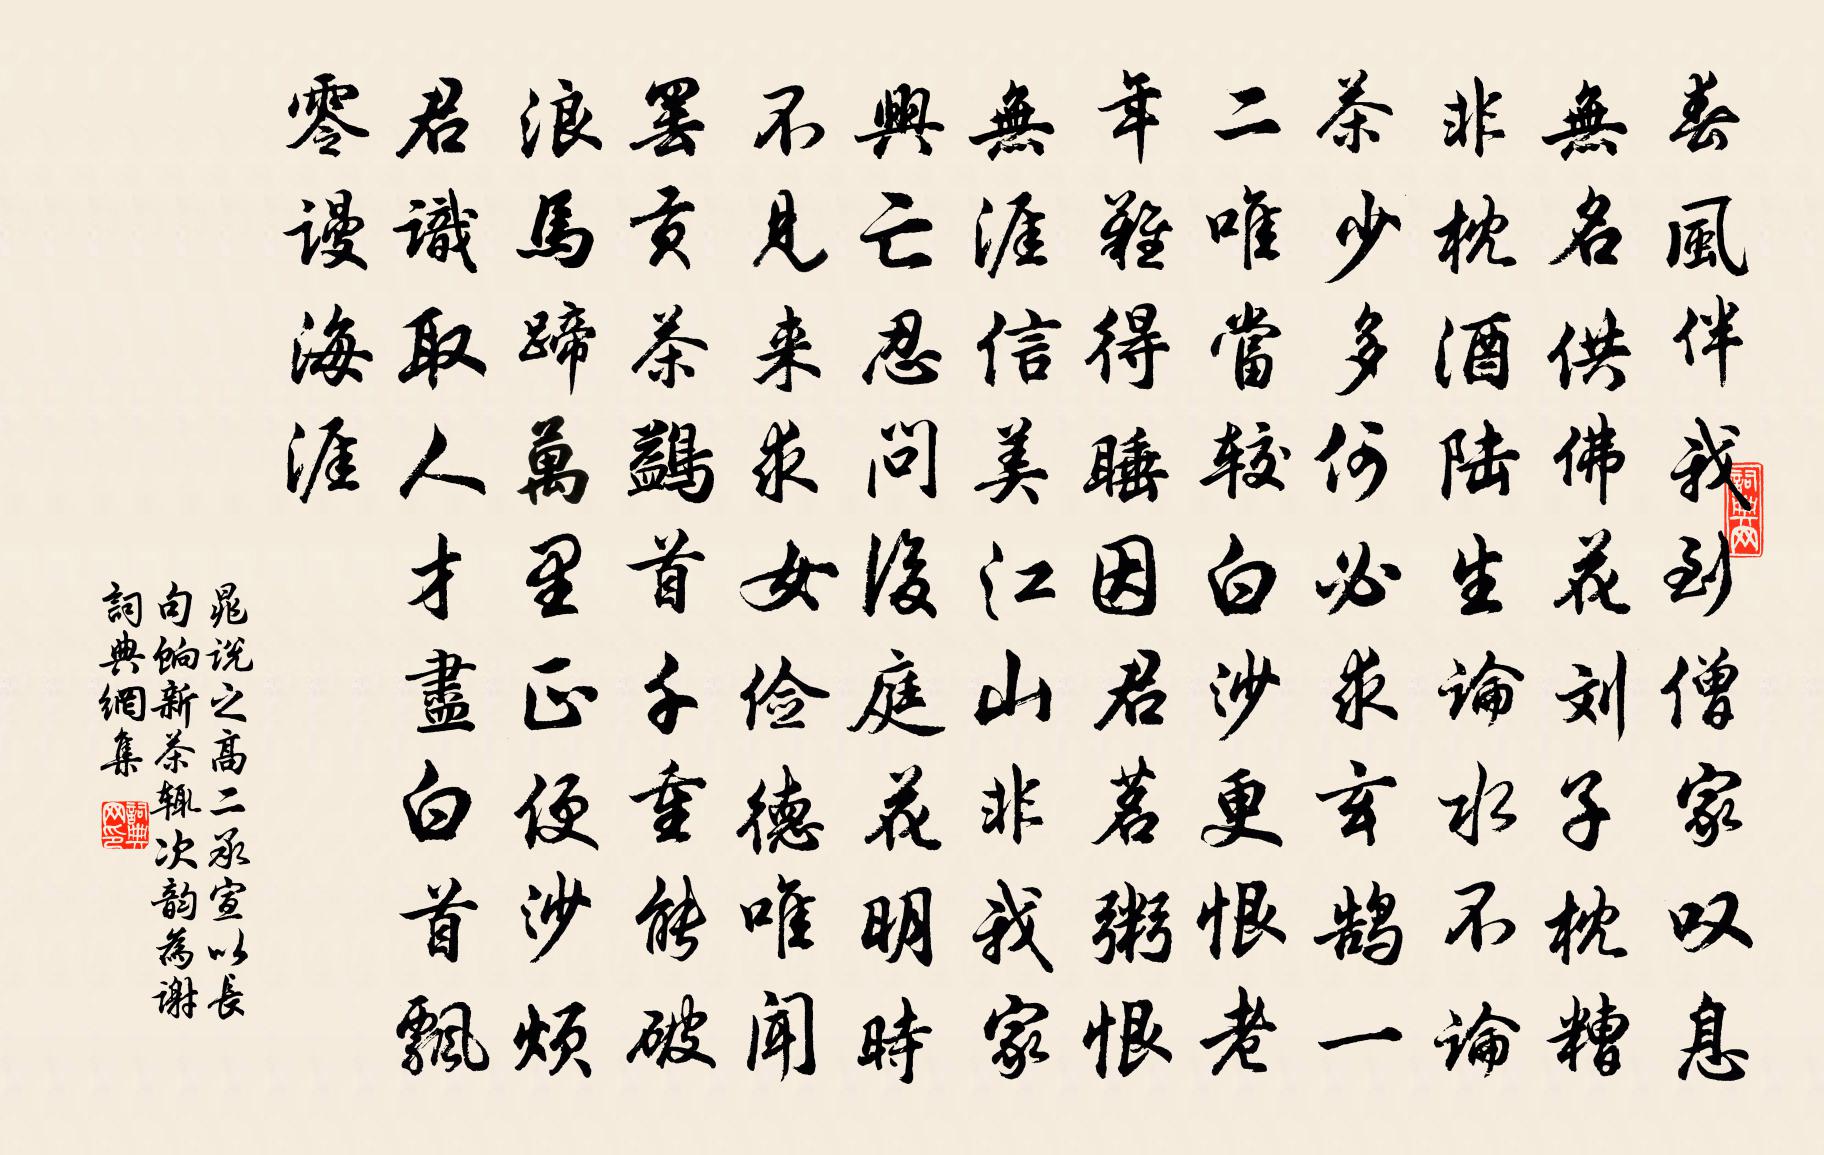 春風伴我到僧家叹息
無名供佛花刘子枕糟
非枕酒陆生論水不論
茶少多何必求玄鹄一
二唯當较白沙更恨老
年難得睡因君茗粥恨
無涯信美江山非我家
興亡忍問後庭花明時
不見来求女俭德唯闻
罢贡茶鷁首千重能破
浪馬蹄萬里正便沙煩
君識取人才盡白首飄
零谩海涯
晁说之高二承宣以長
句餉新茶辄次韵為谢
詞典網集